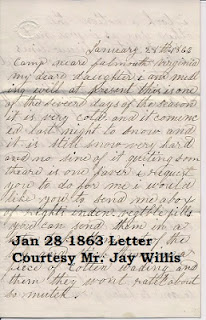 January 28th 1863
Camp neare falmouth Virginia
my deare daughter i am
well at present this is one
of the severd days of the season
it is very cold and it comenc
ed last night to snow and
it is still snow very hard
and no sine of it quiting som
theare is one favor i request
you to do for me i would
like you to send me a box
of rights inden vegtble pills
you can send them in a
of the
Jan 28 1863 Letter
Courtesy Mr. Jay Willis
piece of Cotten wading and
then they wont rattel about
so mutch